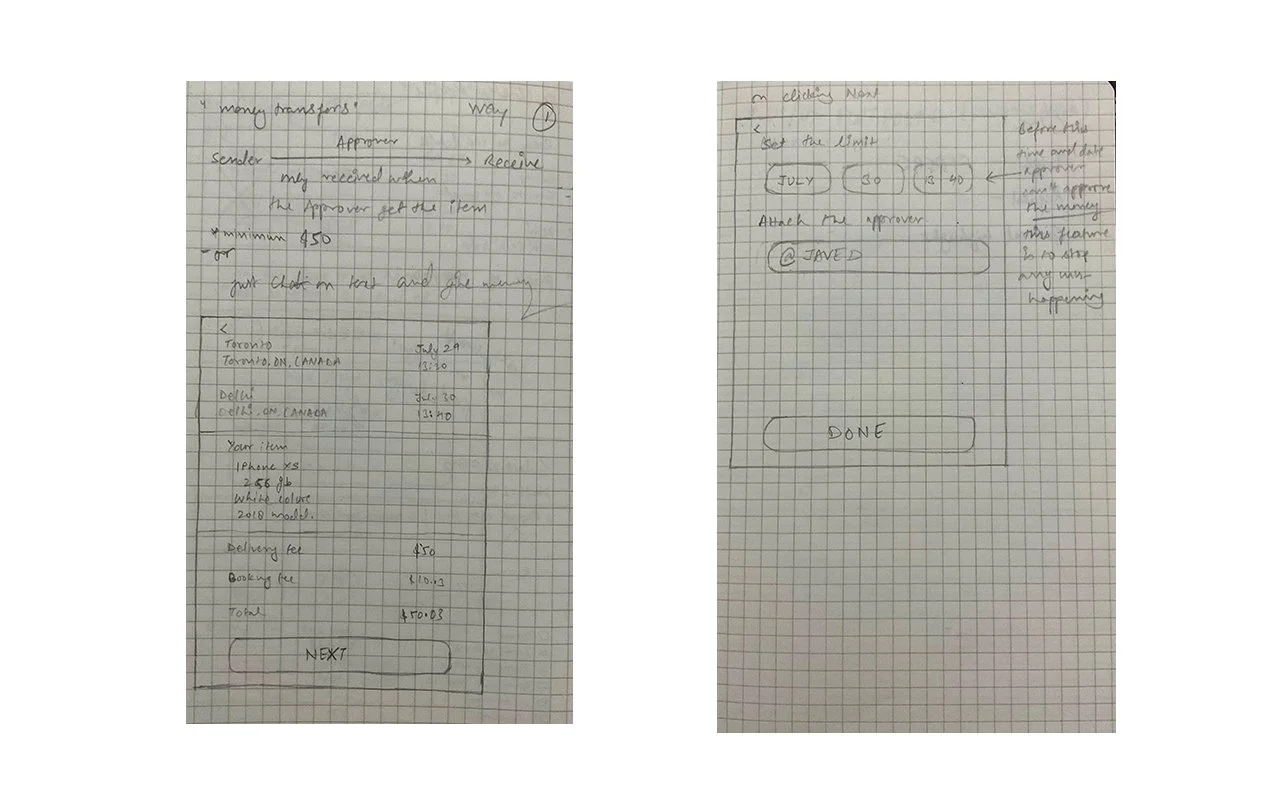 " money transfors" Way 1
Approver
Sender → Receive
only received when
the Approver get the item
*minimum $50
- or
just Chat on text and give money
<
Toronto July 29
Toronto, ON, CANADA 13:30
Delhi July 30
Delhi, ON, CANADA 13:40
Your item
iPhone XS
256 gb
White colure
2018 model.
Delivery fee $50
Booking fee
Total $50.03
NEXT
on clicking Next
<
Set the limit
JULY 30 13 40
Attach the approver
@ JAVED
DONE
Before this
time and date
approver
can't approve
the money
this feature
is to stop
any
happening